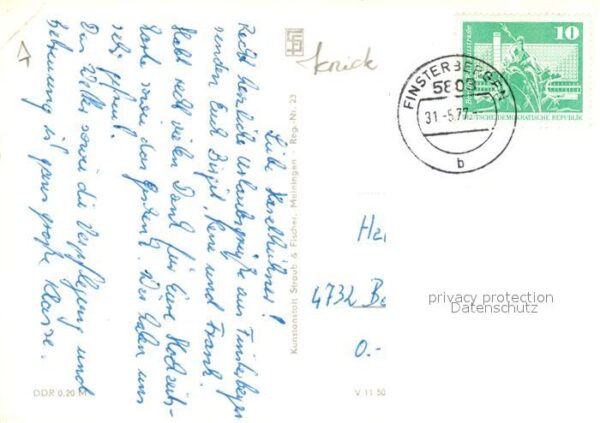 Liebe Haselhuhner!
Recht herzliche Urlaubsgrüße aus Finsterbergen
senden Euch Birgit, Rene und Frank.
Habt recht vielen Dank für Eure Hochzeits-
karte sowie das Geschenk. Wir haben uns
sehr gefreut.
Das Wetter sowie die Verpflegung und
Betreuung ist ganz große Klasse.
knick
Kunstanstalt Straub & Fischer, Meiningen · Reg.-Nr. 23
DDR 0,20 M
V 11 50
10
DEUTSCHE DEMOKRATISCHE REPUBLIK
FINSTERBERGEN
5808
31.-5.77.-
b
4732 Ba
0.-
privacy protection
Datenschutz